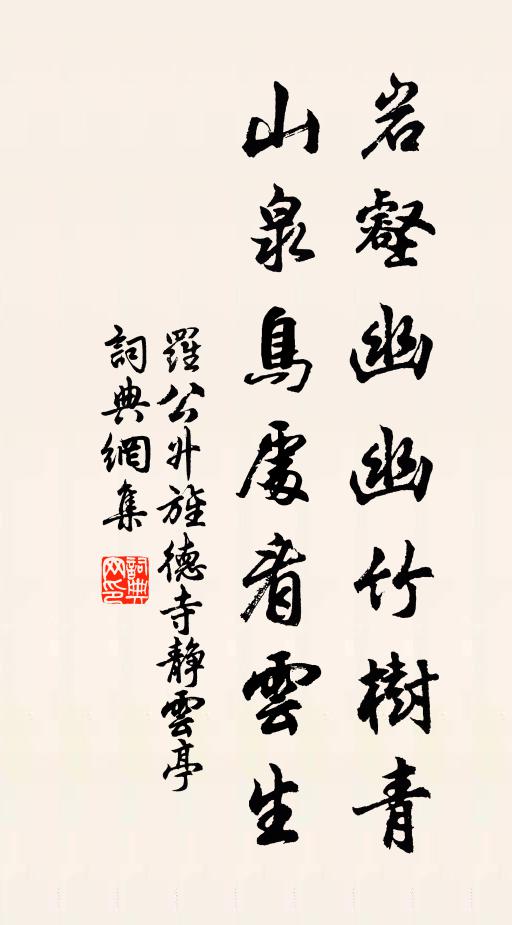 岩壑幽幽竹樹青
山泉鳥處看雲生
羅公升旌德寺靜雲亭
詞典網集
詞典网印